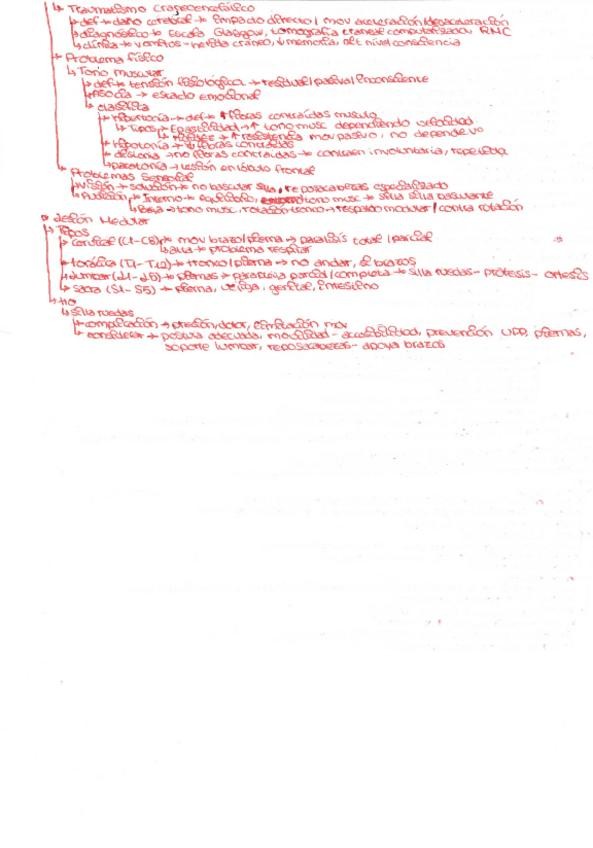 ↳ Traumatismo craneoencefálico
↳ def → daño cerebral → impacto directo / mov aceleración/desaceleración
↳ diagnóstico → Escala Glasgow, tomografía craneal computalizada, RNC
↳ clínica → vómitos - herida cráneo, ↓ memoria, alt nivel consciencia
↳ Problema físico
↳ Tono muscular
↳ def → tensión fisiológica → residual/pasiva/inconsciente
↳ asocia → estado emocional
↳ clasifica
↳ hipertonía → def → ↑ fibras contraídas músculo
↳ Tipos → Espasticidad → ↑ tono musc dependiendo velocidad
→ ↑ resistencia mov pasivo, no depende vo
↳ hipotonía → ↓ fibras contraídas
↳ distonía → no fibras contraídas → contraen involuntaria, repetida
↳ paratonía → lesión en lóbulo frontal
↳ Problemas Sensorial
↳ Visión → solución → no bascular silla, reposacabezas especializado
↳ interno → equilibrio, tono musc → silla basculante
↳ tono musc, rotación tronco → respaldo modular / contra rotación
Lesión Medular
↳ Tipos
↳ Cervical (C1-C8) → mov brazo/pierna → parálisis total / parcial
↳ alta → problema respirar
↳ torácica (T1-T12) → tronco/pierna → no andar, sí brazos
↳ lumbar (L1-L5) → piernas → paraplejia parcial/completa → silla ruedas - prótesis - ortesis
↳ sacra (S1-S5) → pierna, vejiga, genital, intestino
↳ tto
↳ silla ruedas
↳ complicación → presión/dolor, limitación mov
↳ considerar → postura adecuada, movilidad - accesibilidad, prevención UPP, piernas,
soporte lumbar, reposacabezas - apoya brazos